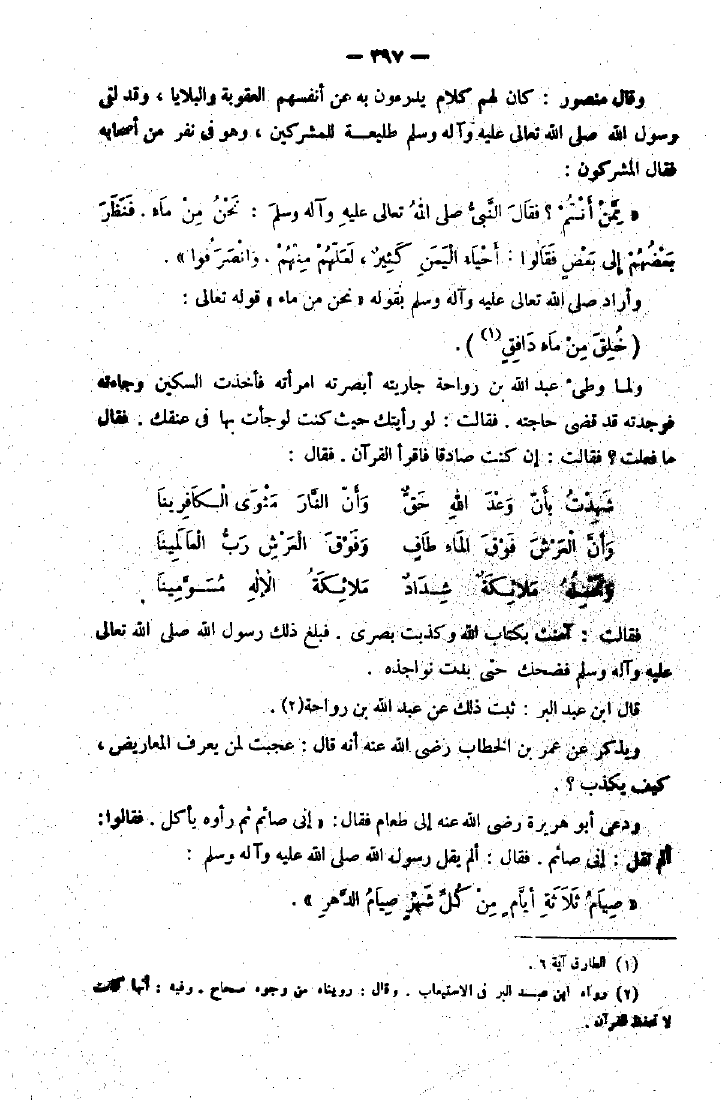 — ٣٩٧ —
وقال منصور : كان لهم كلام يدرءون به عن أنفسهم العقوبة والبلايا ، وقد لقى
رسول الله صلى الله تعالى عليه وآله وسلم طليعـــة للمشركين ، وهو فى نفر من أصحابه
فقال المشركون :
« مِمَّنْ أَنْتُمْ ؟ فقَالَ النَّبىُّ صلى اللهُ تعالى عليهِ وآله وسلمَ : نَحْنُ مِنْ مَاءٍ . فَنَظَرَ
بَعْضُهُمْ إِلى بَعْضٍ فَقَالُوا : أَحْيَاءِ الْيَمَنِ كَثِيرٌ ، لَعَلَّهُمْ مِنْهُمْ . وَانْصَرَفُوا » .
وأراد صلى الله تعالى عليه وآله وسلم بقوله « نحن من ماء » قوله تعالى :
( خُلِقَ مِنْ مَاءٍ دَافِقٍ (١) ) .
ولمــا وطىء عبد الله بن رواحة جاريته أبصرته امرأته فأخذت السكين وجاءته
فوجدته قد قضى حاجته . فقالت : لو رأيتك حيث كنت لوجأت بها فى عنقك . فقال
ما فعلت ؟ فقالت : إن كنت صادقا فاقرأ القرآن . فقال :
شَهِدْتُ بِأَنَّ وَعْدَ اللهِ حَقٌّ وَأَنَّ النَّارَ مَثْوَى الْـكَافِرِينَا
وَأَنَّ الْعَرْشَ فَوْقَ المَاءِ طَافٍ وَفَوْقَ الْعَرْشِ رَبُّ الْعَالَمِينَا
وَتَحْمِلُهُ مَلائِكَةٌ شِدَادٌ مَلائِكَةُ الْإِلٰهِ مُسَوَّمِينَا
فقالت : آمنت بكتاب الله وكذبت بصرى . فبلغ ذلك رسول الله صلى الله تعالى
عليه وآله وسلم فضحك حتى بدت نواجذه .
قال ابن عبد البر : ثبت ذلك عن عبد الله بن رواحة(٢) .
ويذكر عن عمر بن الخطاب رضى الله عنه أنه قال : عجبت لمن يعرف المعاريض ،
كيف يكذب ؟ .
ودعى أبو هريرة رضى الله عنه إلى طعام فقال : « إنى صائم ثم رأوه يأكل . فقالوا :
ألم تقل : إنى صائم . فقال : ألم يقل رسول الله صلى الله عليه وآله وسلم :
« صِيَامُ ثَلَاثَةِ أَيَّامٍ مِنْ كُلِّ شَهْرٍ صِيَامُ الدَّهرِ » .
(١) الطارق آية ٦ .
(٢) رواه ابن عبــد البر فى الاستيعاب . وقال : رويناه من وجوه صحاح . وفيه : أنها كانت
لا تحفظ القرآن .